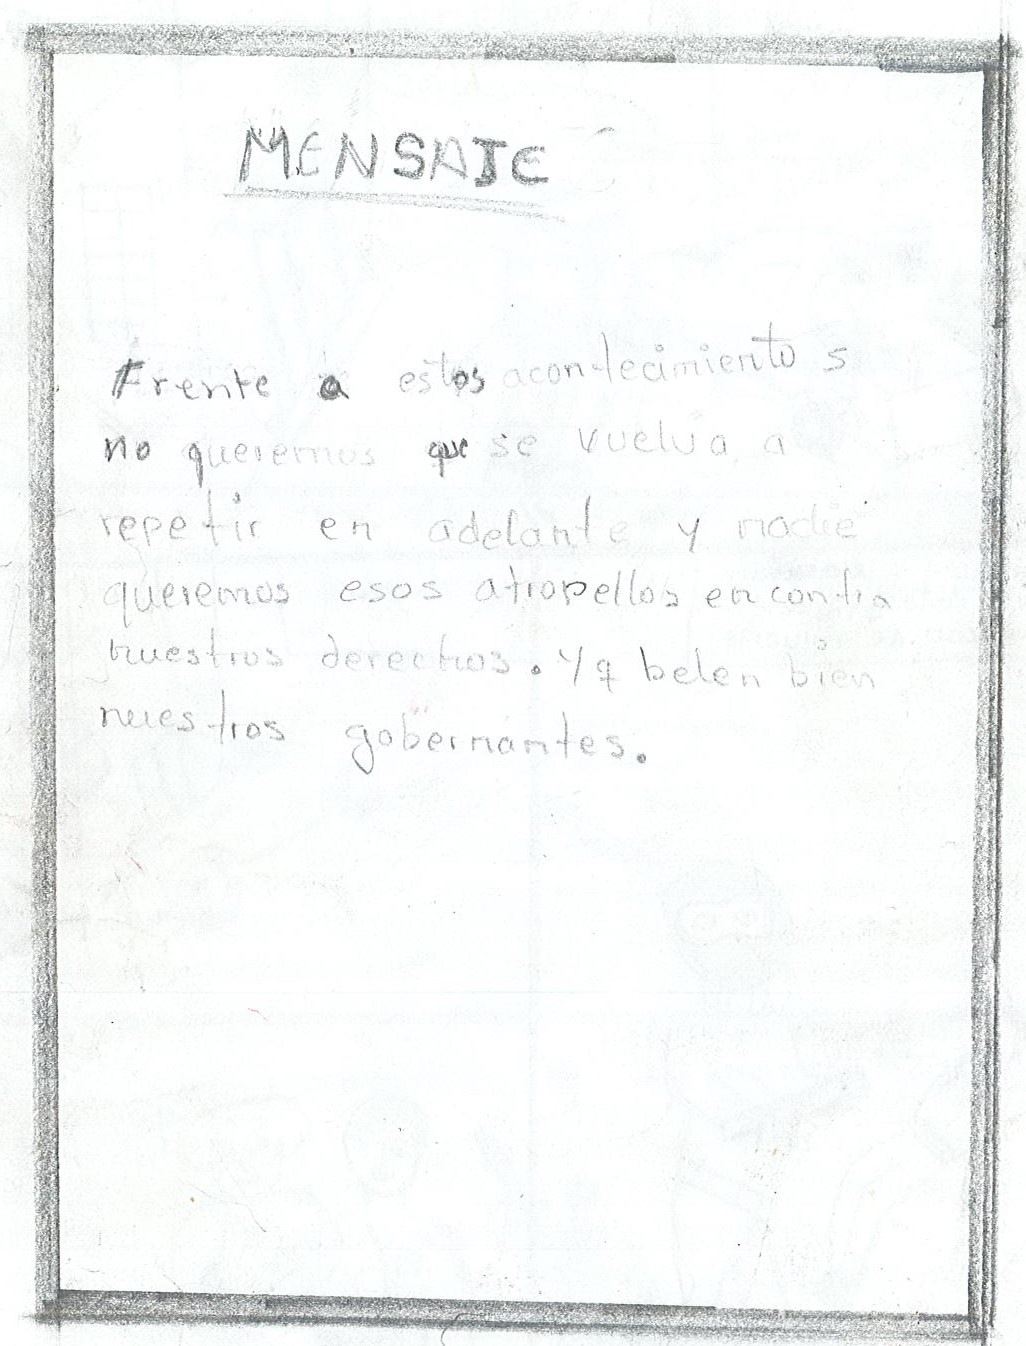 MENSAJE
Frente a estos acontecimientos
no queremos que se vuelva a
repetir en adelante y nadie
queremos esos atropellos en contra
nuestros derechos. Y q belen bien
nuestros gobernantes.